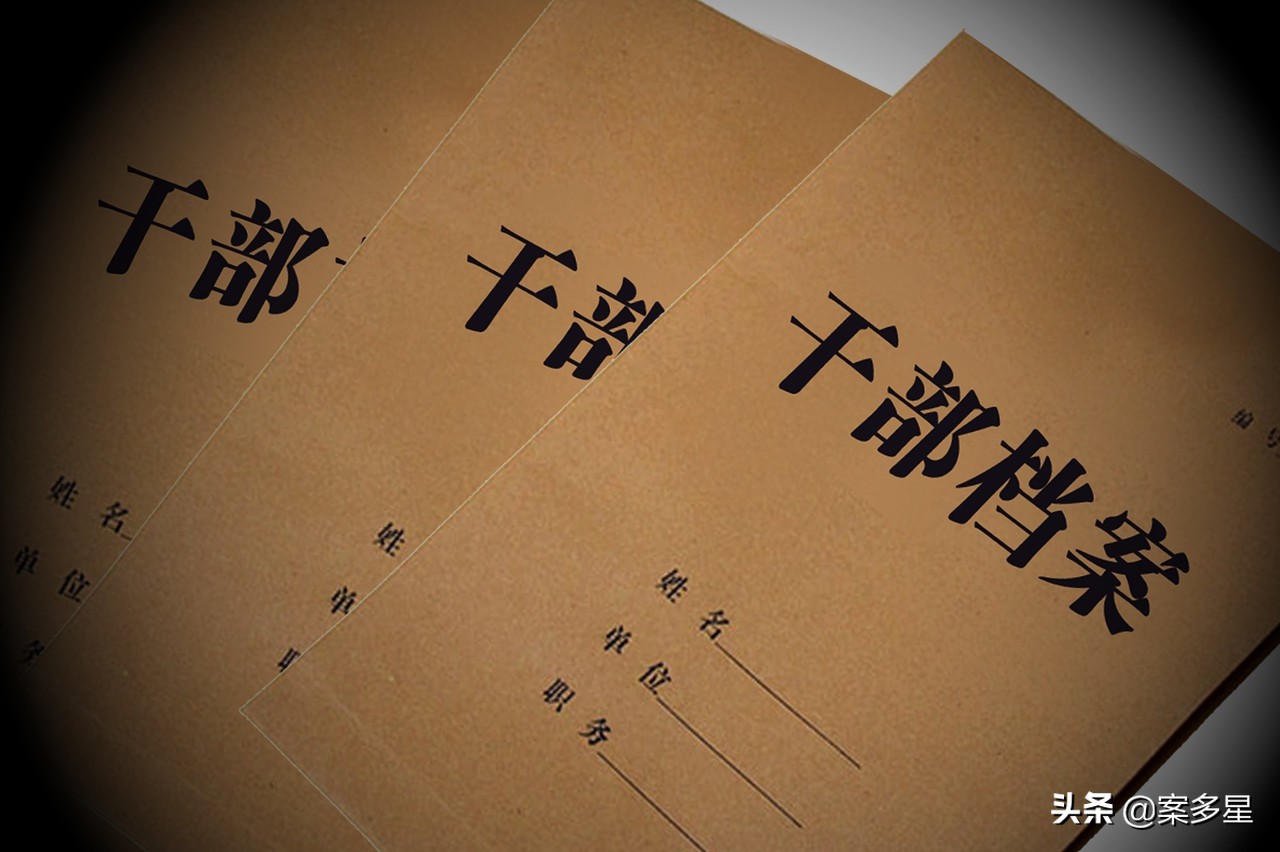 干部
姓名
单位
务
干部
姓
单
干部档案
编号
姓名
单位
职务
头条 @案多星